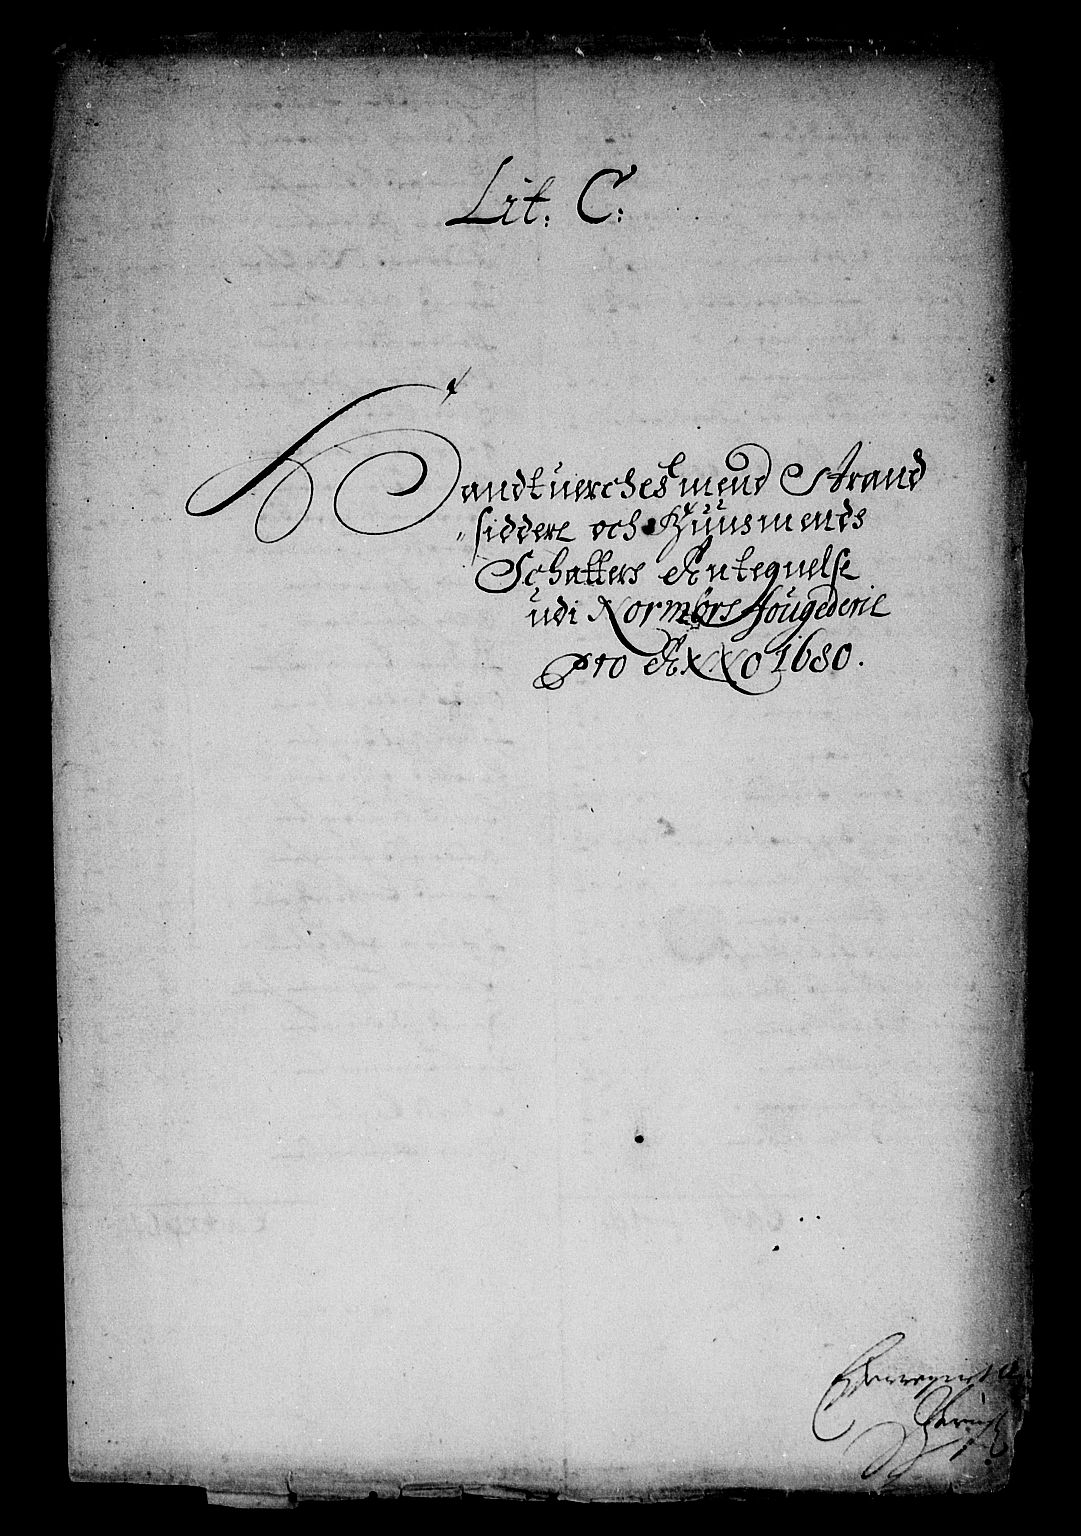 Lit. C:
Handtuerchesmend Strand
siddere och Huusmends
Schatters Antegnelse
udi Normørs fougederie
pro Anno 1680.